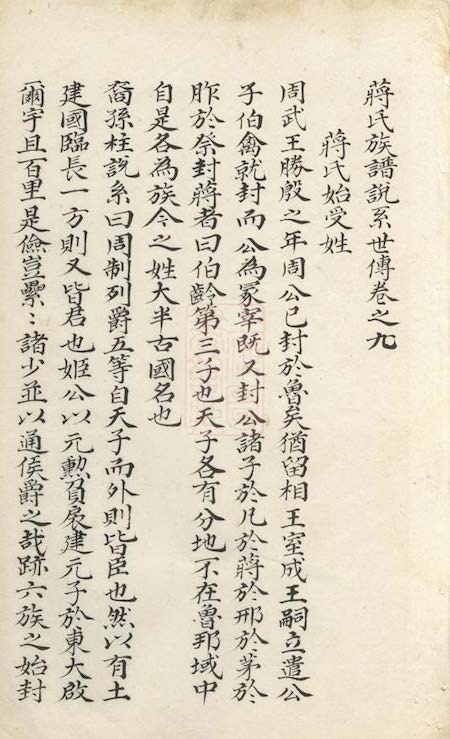 蔣氏族譜說系世傳卷之九
蔣氏始受姓
周武王勝殷之年周公已封於魯矣猶留相王室成王嗣立遣公
子伯禽就封而公為冢宰既又封公諸子於凡於蔣於邢於茅於
胙於祭封蔣者曰伯齡第三子也天子各有分地不在魯邦域中
自是各為族今之姓大半古國名也
裔孫柱說系曰周制列爵五等自天子而外則皆臣也然以有土
建國臨長一方則又皆君也姬公以元勲負扆建元子於東大啟
爾宇且百里是儉豈纍〻諸少並以通侯爵之哉跡六族之始封